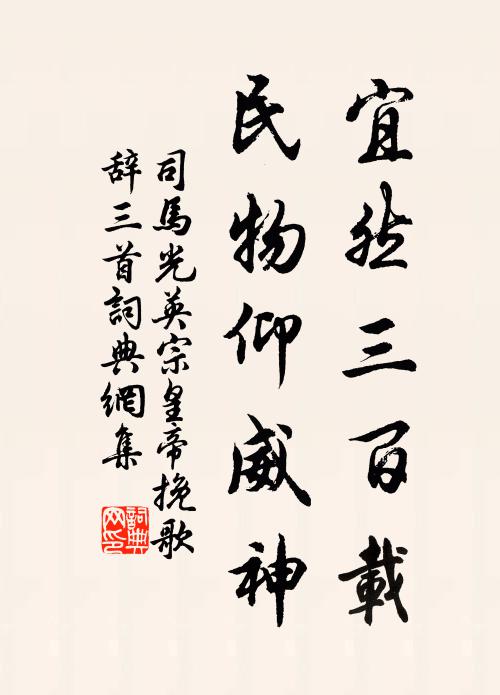 宜然三百載
民物仰威神
司馬光英宗皇帝挽歌
辞三首詞典網集
詞典
网印